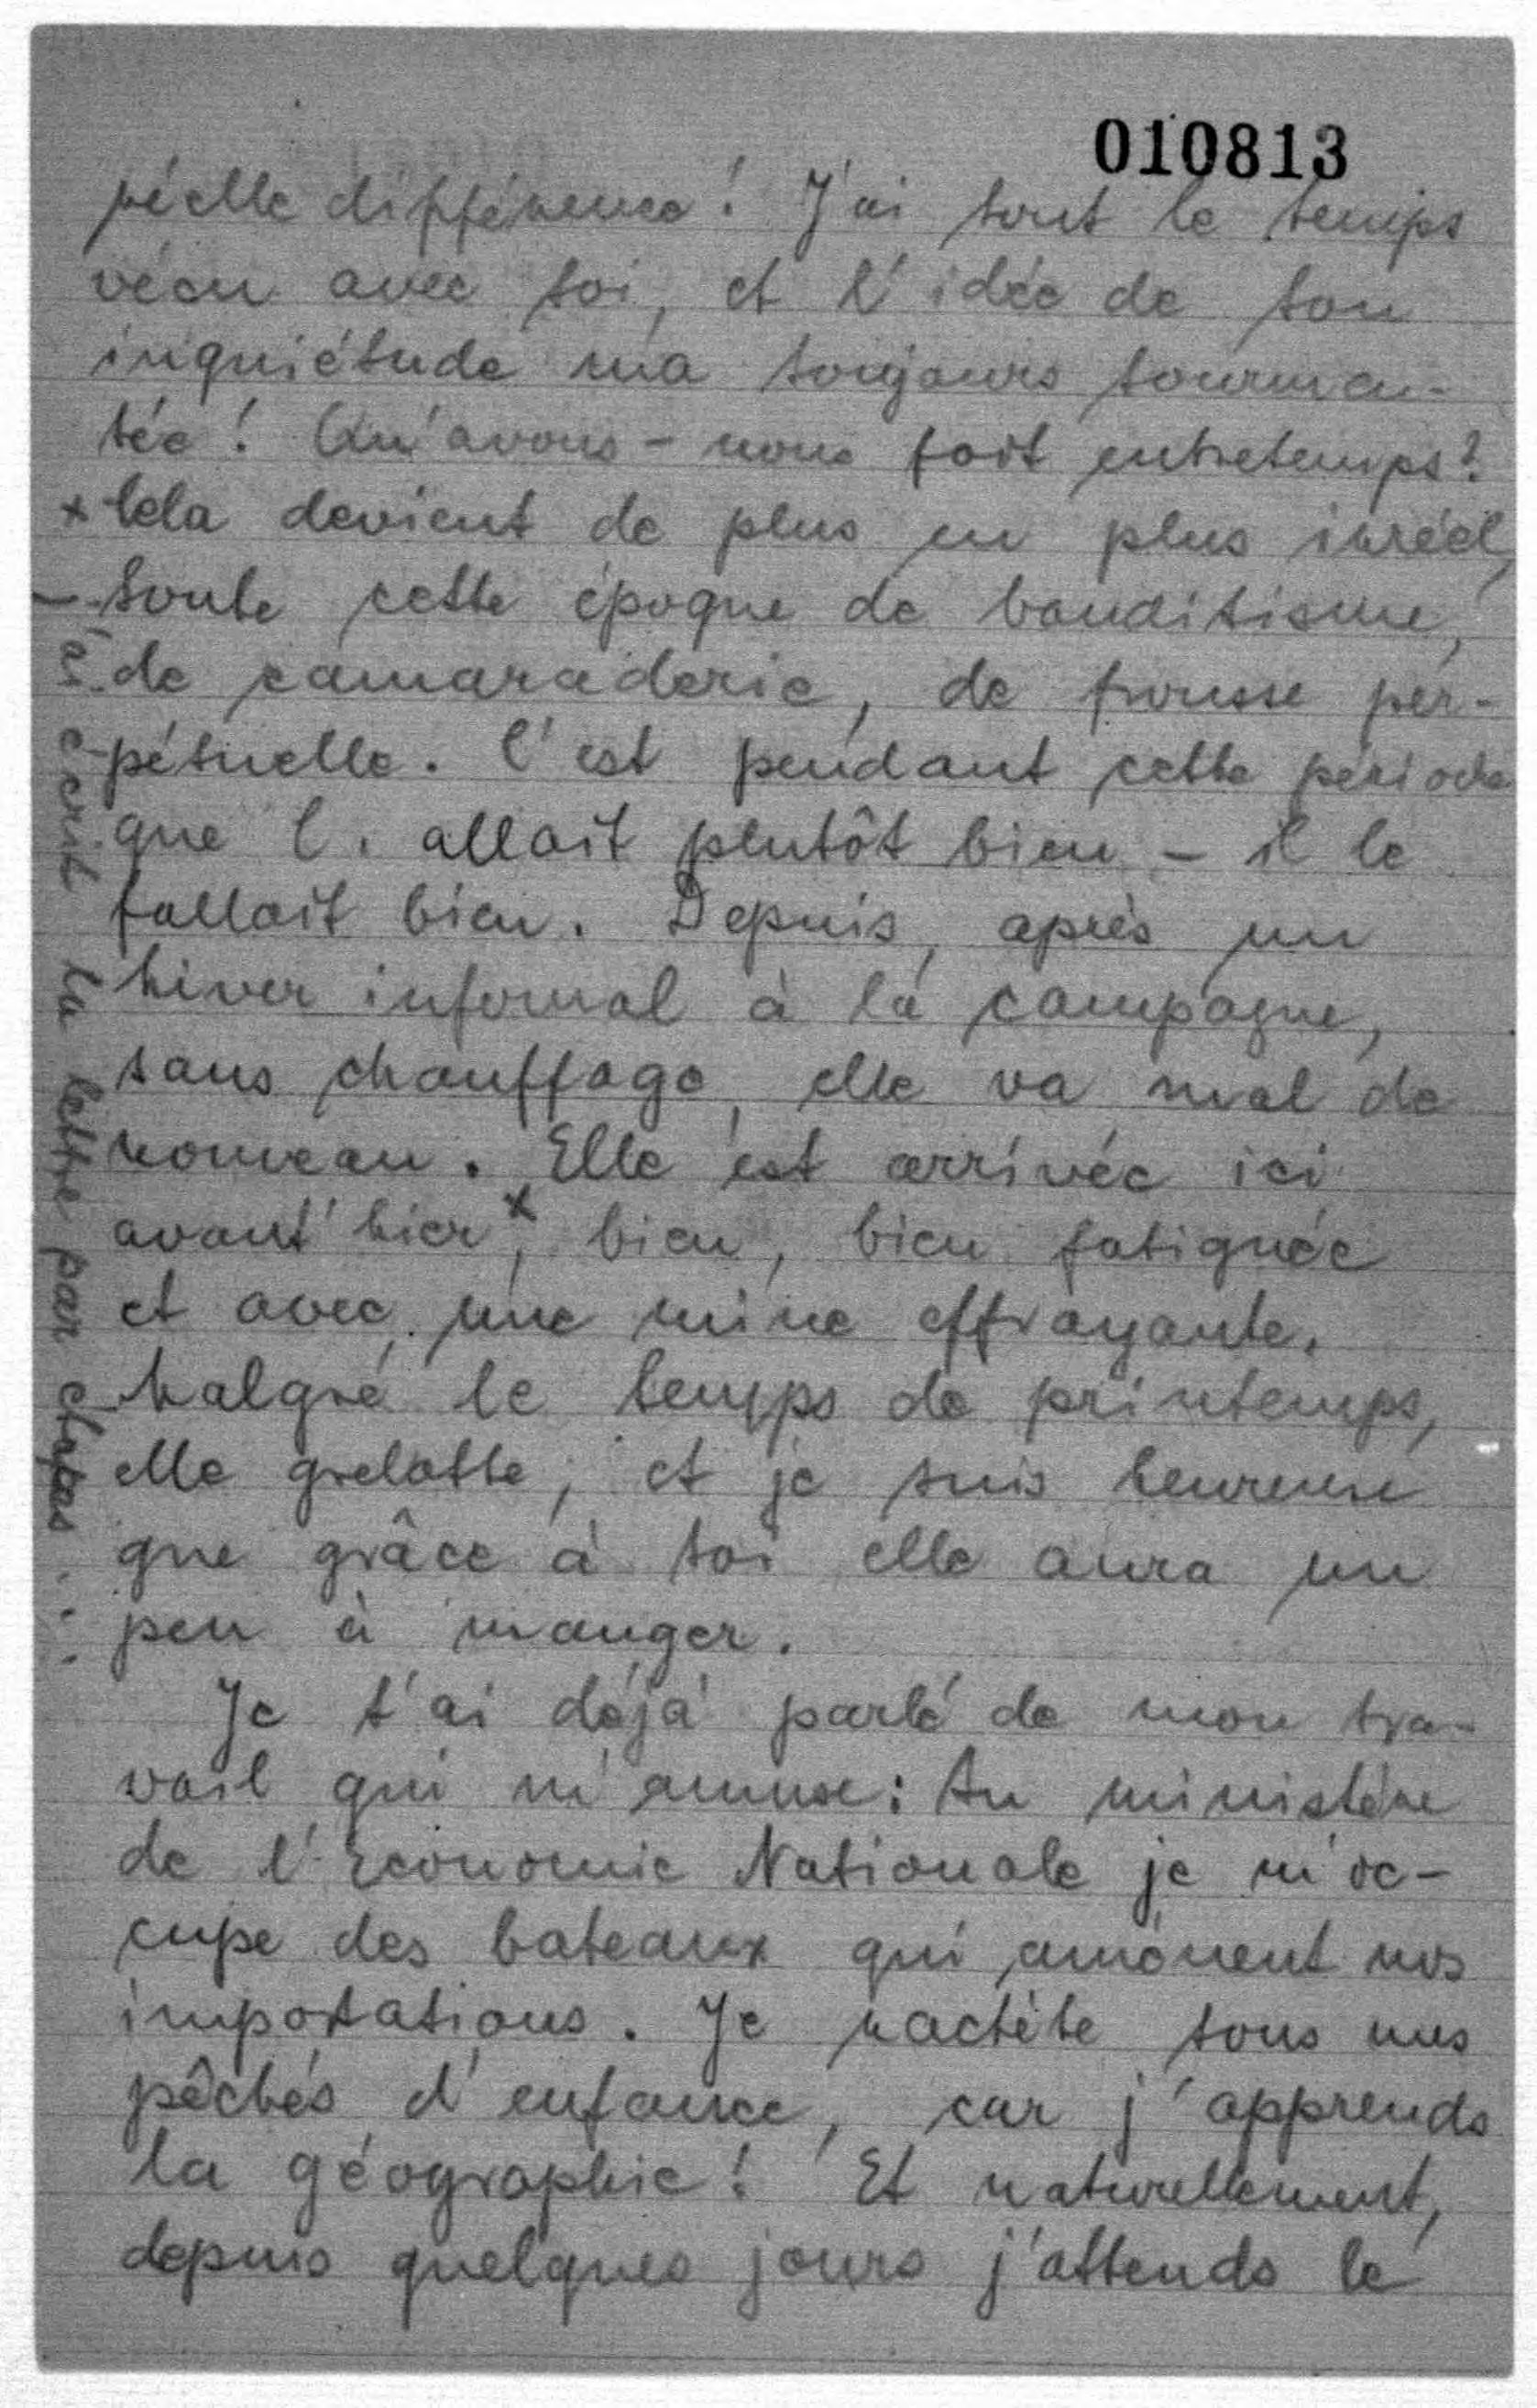 010813
réelle différence! J'ai tout le temps
vécu avec toi, et l'idée de ton
inquiétude m'a toujours tourmen-
tée! Qu'avons-nous fait entretemps?
Cela devient de plus en plus irréel,
toute cette époque de banditisme,
de camaraderie, de frousse per-
pétuelle. C'est pendant cette période
que C. allait plutôt bien - il le
fallait bien. Depuis, après un
hiver infernal à la campagne,
sans chauffage, elle va mal de
nouveau. Elle est arrivée ici
avant'hier x, bien, bien fatiguée
et avec une mine effrayante.
Malgré le temps de printemps,
elle grelotte, et je suis heureuse
que grâce à toi elle aura un
peu à manger.
Je t'ai déjà parlé de mon tra-
vail qui m'amuse: Au ministère
de l'Economie Nationale je m'oc-
cupe des bateaux qui amènent nos
importations. Je rachète tous mes
pêchés d'enfance, car j'apprends
la géographie! Et naturellement,
depuis quelques jours j'attends le
x écrit la lettre par étapes ...